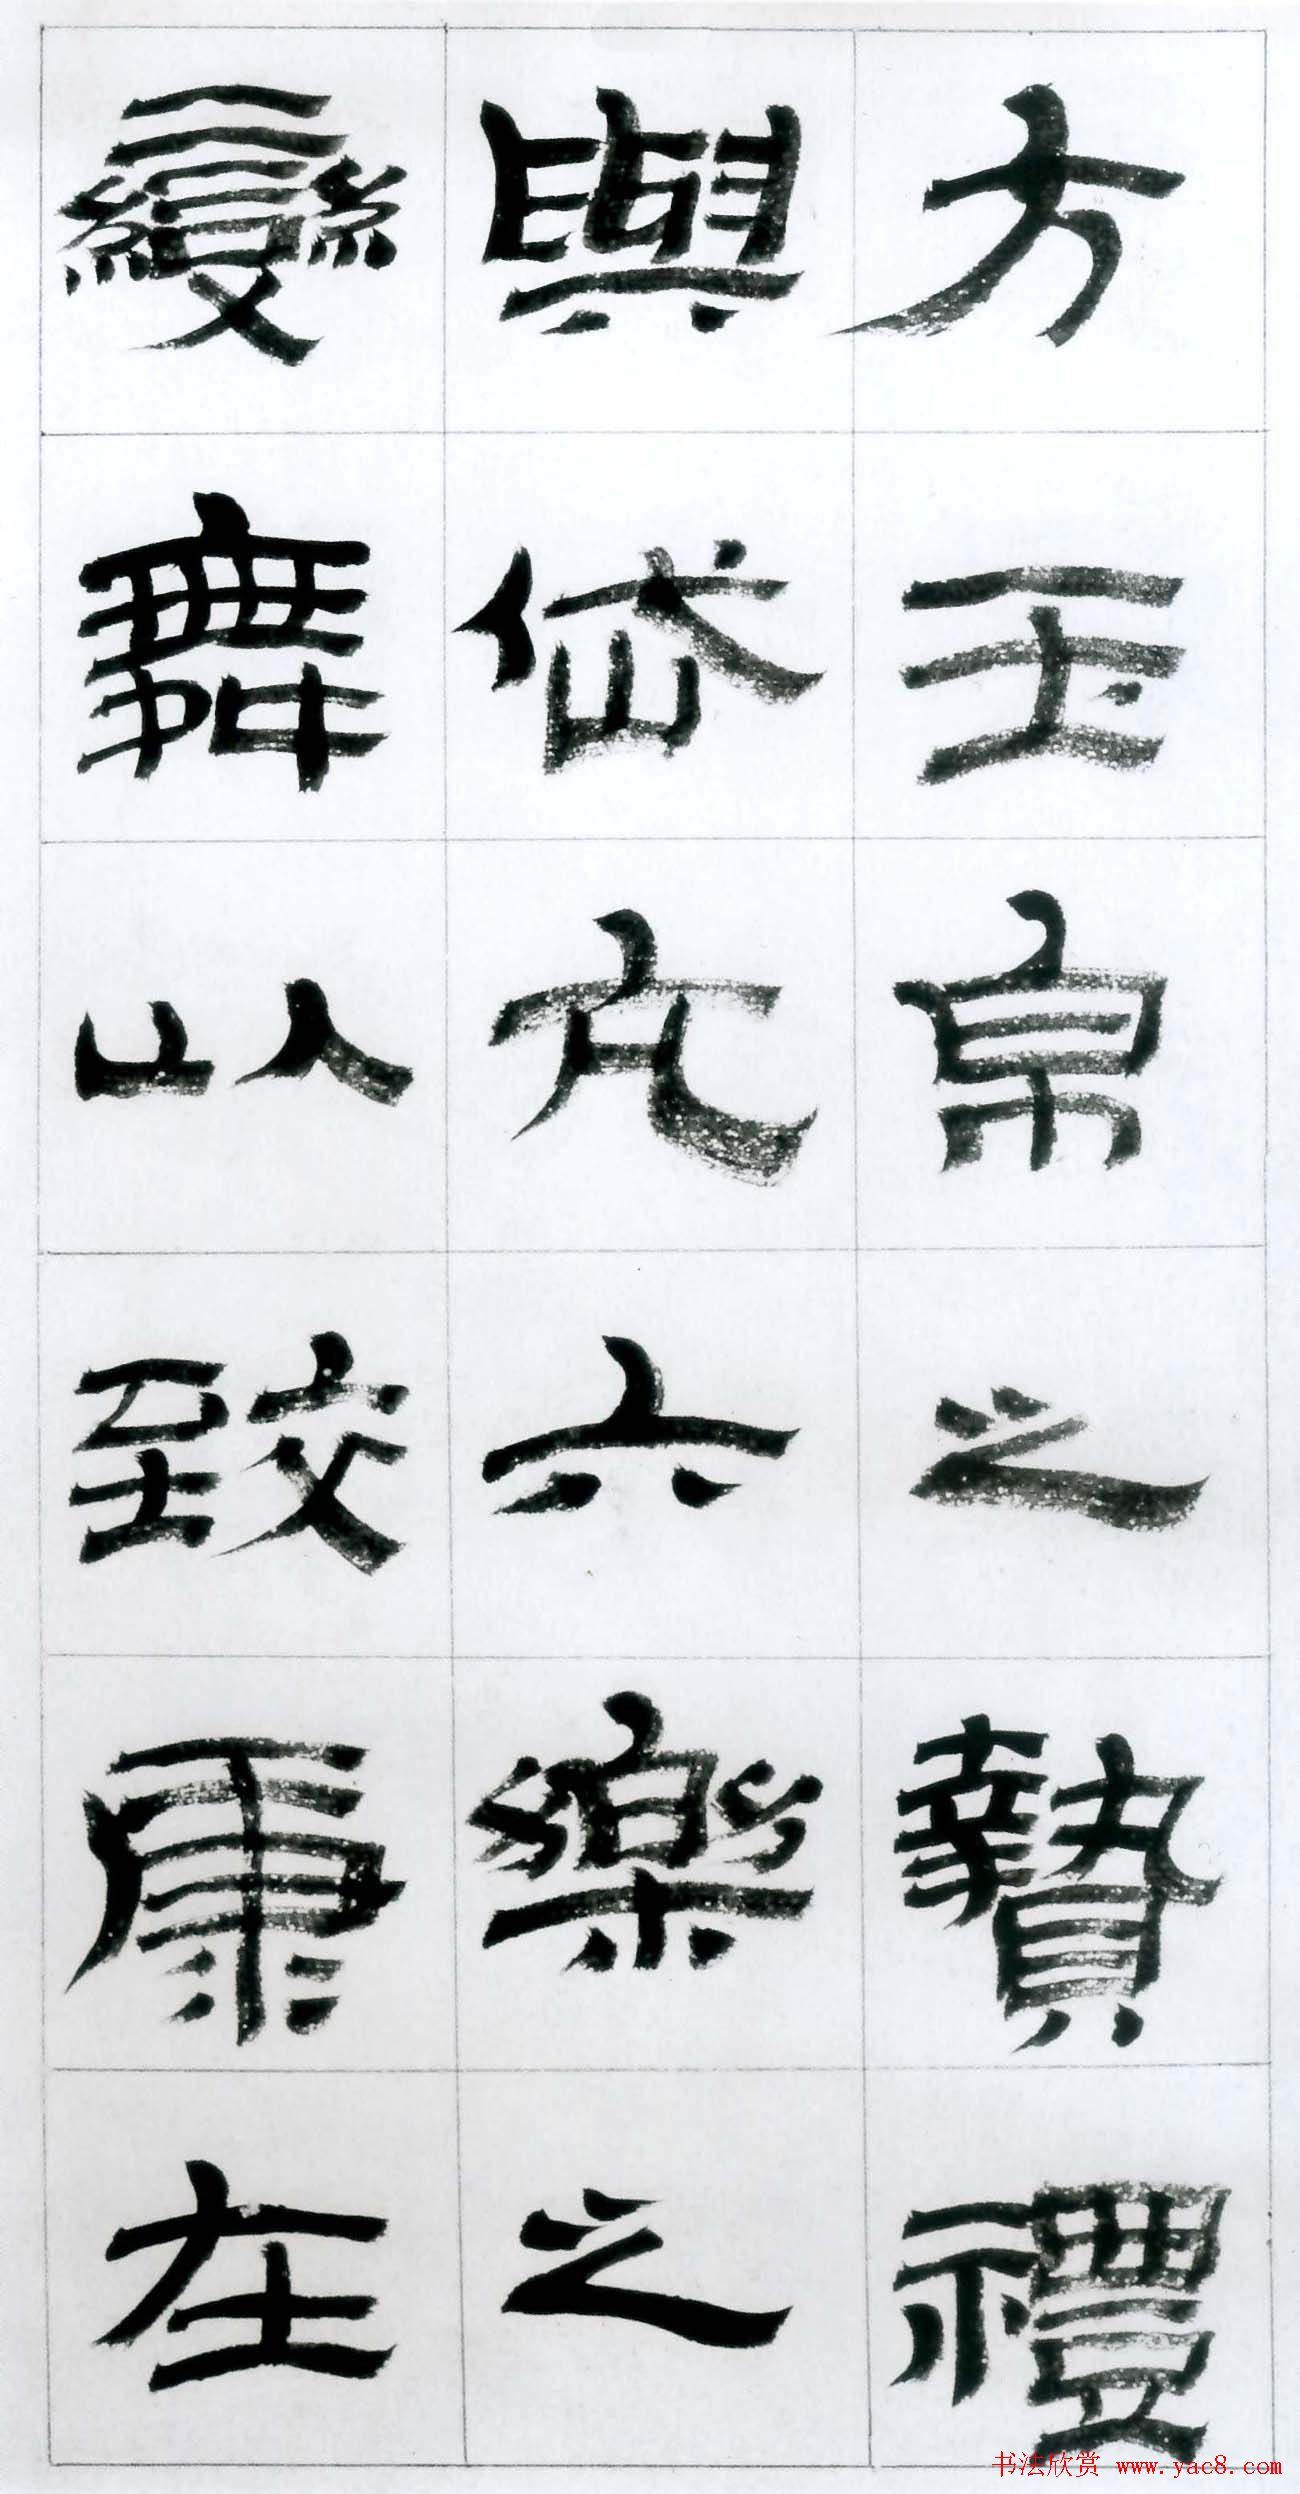 方玉帛之贄禮
與岱亢六樂之
變舞以致康在
书法欣赏 www.yac8.com